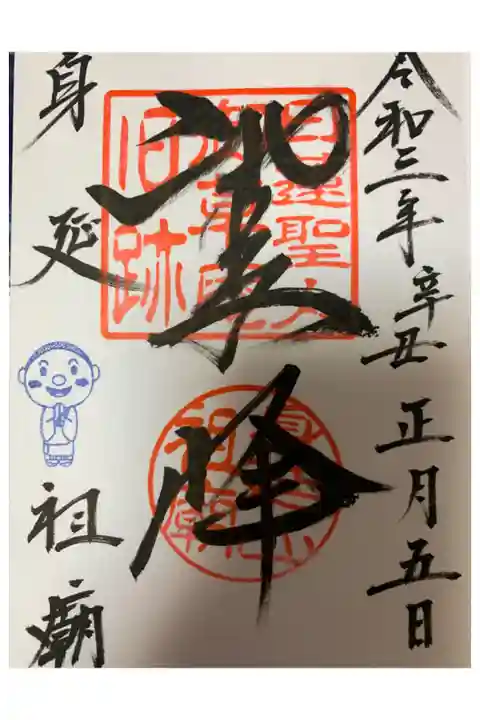 令和三年 辛丑 正月五日
鷲峰
身延
祖廟
日蓮聖人
旧跡
祖廟